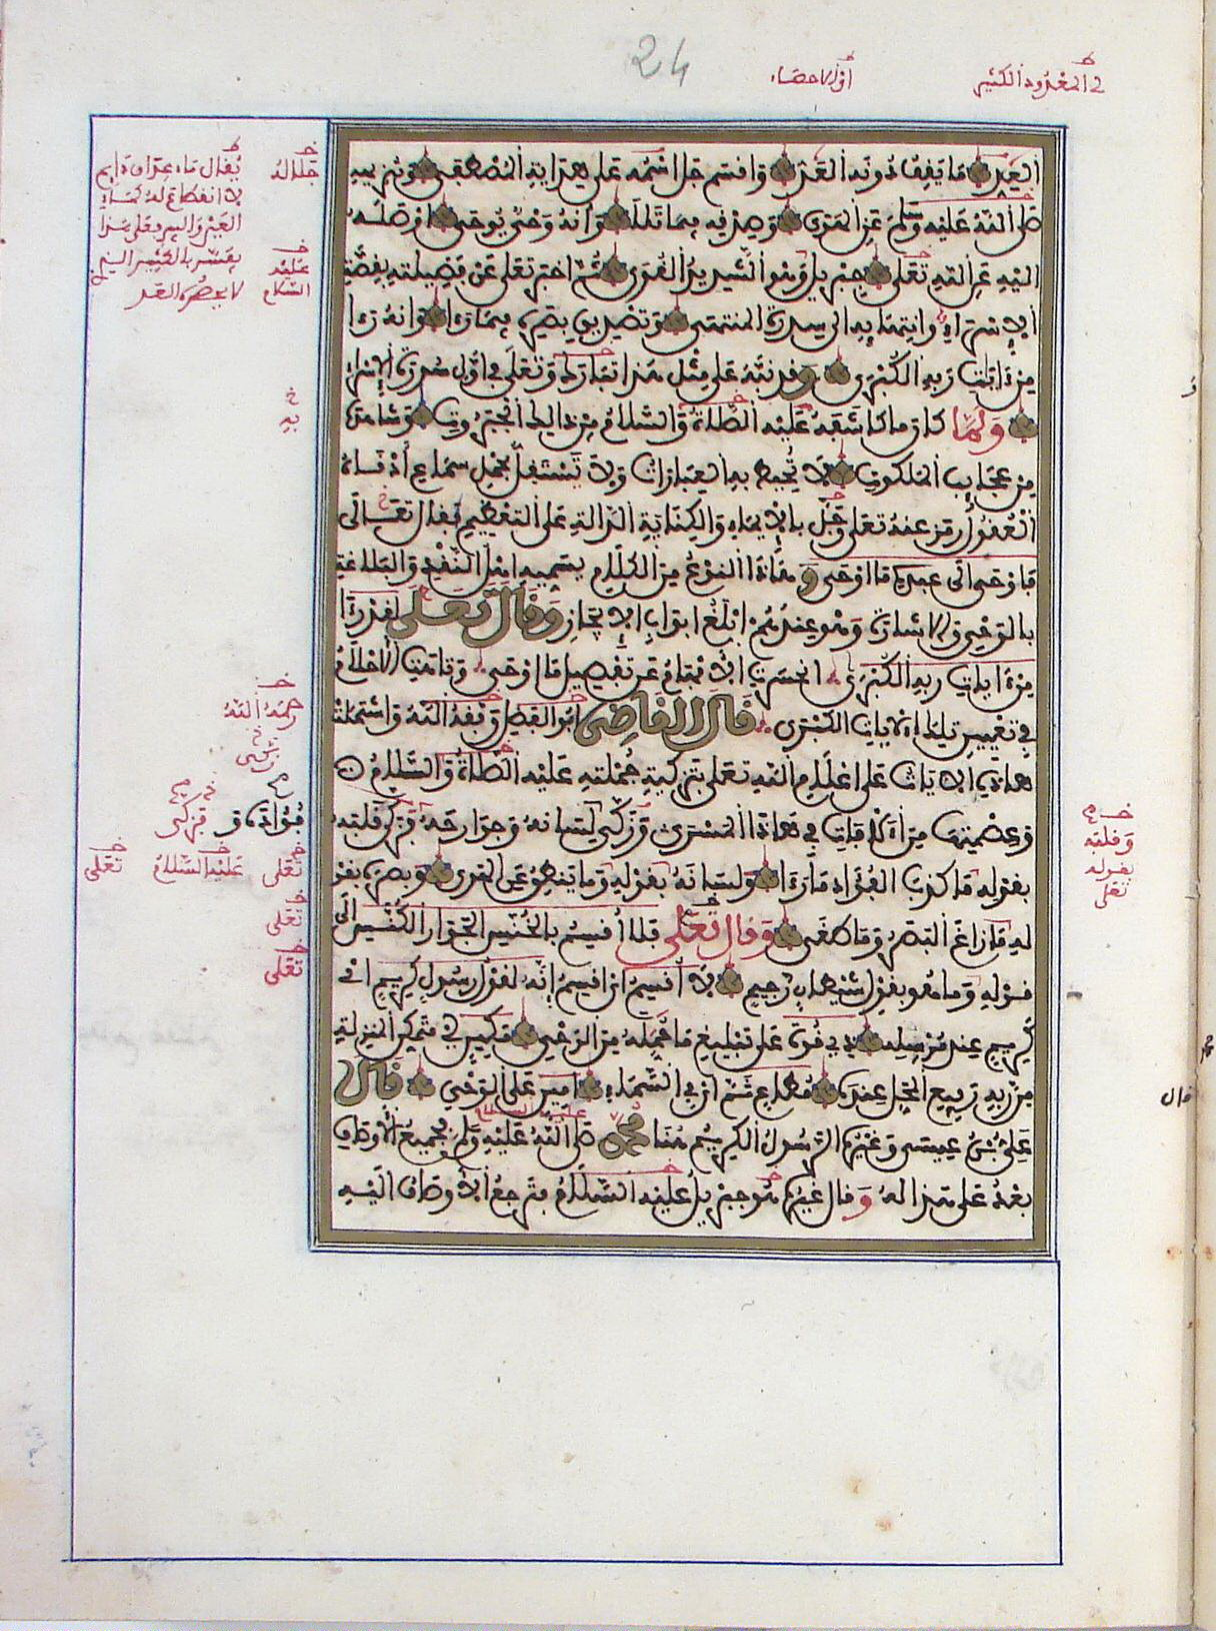 24
العد ما يقف دونه العد وأقسم جل اسمه على هداية المصطفى وتنزيهه
صلى الله عليه وسلم عن الهوى وصدقه بما تلا وأنه وحي يوحى أوصله
إليه عن الله تعالى جبريل وهو الشديد القوى ثم أخبر تعالى عن فضيلته بقصة
الإسراء وانتهائه إلى سدرة المنتهى وتصديق بصره بما رأى وأنه رأى
من آيات ربه الكبرى وقد نبه على مثل هذا تبارك وتعالى في أول سورة الإسراء
ولما كان ما كاشفه عليه الصلاة والسلام من ذلك الجبروت وشاهده
من عجايب الملكوت لا تحيط به العبارات ولا تستقل بحمل سماع أدناه
العقول رمز عنه تعالى وجل بالإيماء والكناية الدالة على التعظيم فقال تعالى
فأوحى الى عبده ما أوحى وهذا النوع من الكلام يسميه أهل النقد والبلاغة
بالوحي والإشارة وهو عندهم أبلغ أبواب الإيجاز وقال تعالى لقد رأى
من آيات ربه الكبرى انحسرت الأفهام عن تفصيل ما أوحى وتاهت الأحلام
في تعيين تلك الآيات الكبرى قال القاضي أبو الفضل وفقه الله واشتملت
هذه الآيات على إعلام الله تعالى بتزكية جملته عليه الصلاة والسلام
وعصمتها من الآفات في هذا المسرى وزكى لسانه وجوارحه فزكى قلبه
بقوله ما كذب الفؤاد ما رأى ولسانه بقوله وما ينطق عن الهوى وبصره بقو
له ما زاغ البصر وما طغى وقال تعلى فلا أقسم بالخنس الجوار الكنس الى
قوله وما هو بقول شيطان رجيم لا أقسم أي أقسم إنه لقول رسول كريم اي
كريم عند مرسله ذي قوة على تبليغ ما حمله من الوحي مكين أي متمكن المنزلة
من ربه رفيع المحل عنده مطاع ثم أي في السماء أمين على الوحي قال
علي بن عيسى وغيره الرسول الكريم هنا محمد صلى الله عليه وسلم فجميع الأوصاف
بعد على هذا له وقال غيره هو جبريل عليه السلام فترجع الأوصاف إليه
في المعدود الكثير
أي الإحصاء
جلاله
يقال ماء عد أي دايم
لا انقطاع له كماء
العين والبير وعلى هذا
عليه
السلام
لا يحصره العد
به
رحمه الله
زكى
فؤاده
تعلى
عليه السلام
تعلى
تعلى
تعلى
وقلبه
بقوله
تعلى
عليه السلام